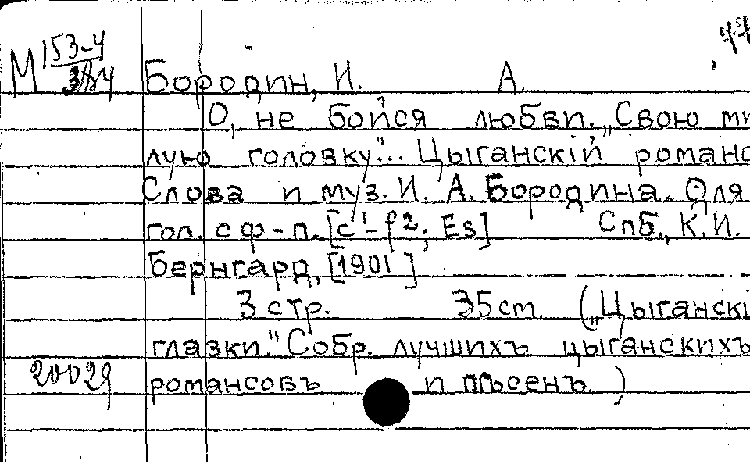 М 153-4
Бородин, И. А.
О, не бойся любви. „Свою ми
лую головку"... Цыганскій романс
Слова и муз. И. А. Бородина. Для
гол. с ф-п. [c¹-f²; Es] Спб., К. И.
Бернгард, [1901]
3 стр. 35 cm („Цыганскі
глазки." Собр. лучшихъ цыганскихъ
20029 романсовъ и пѣсенъ)